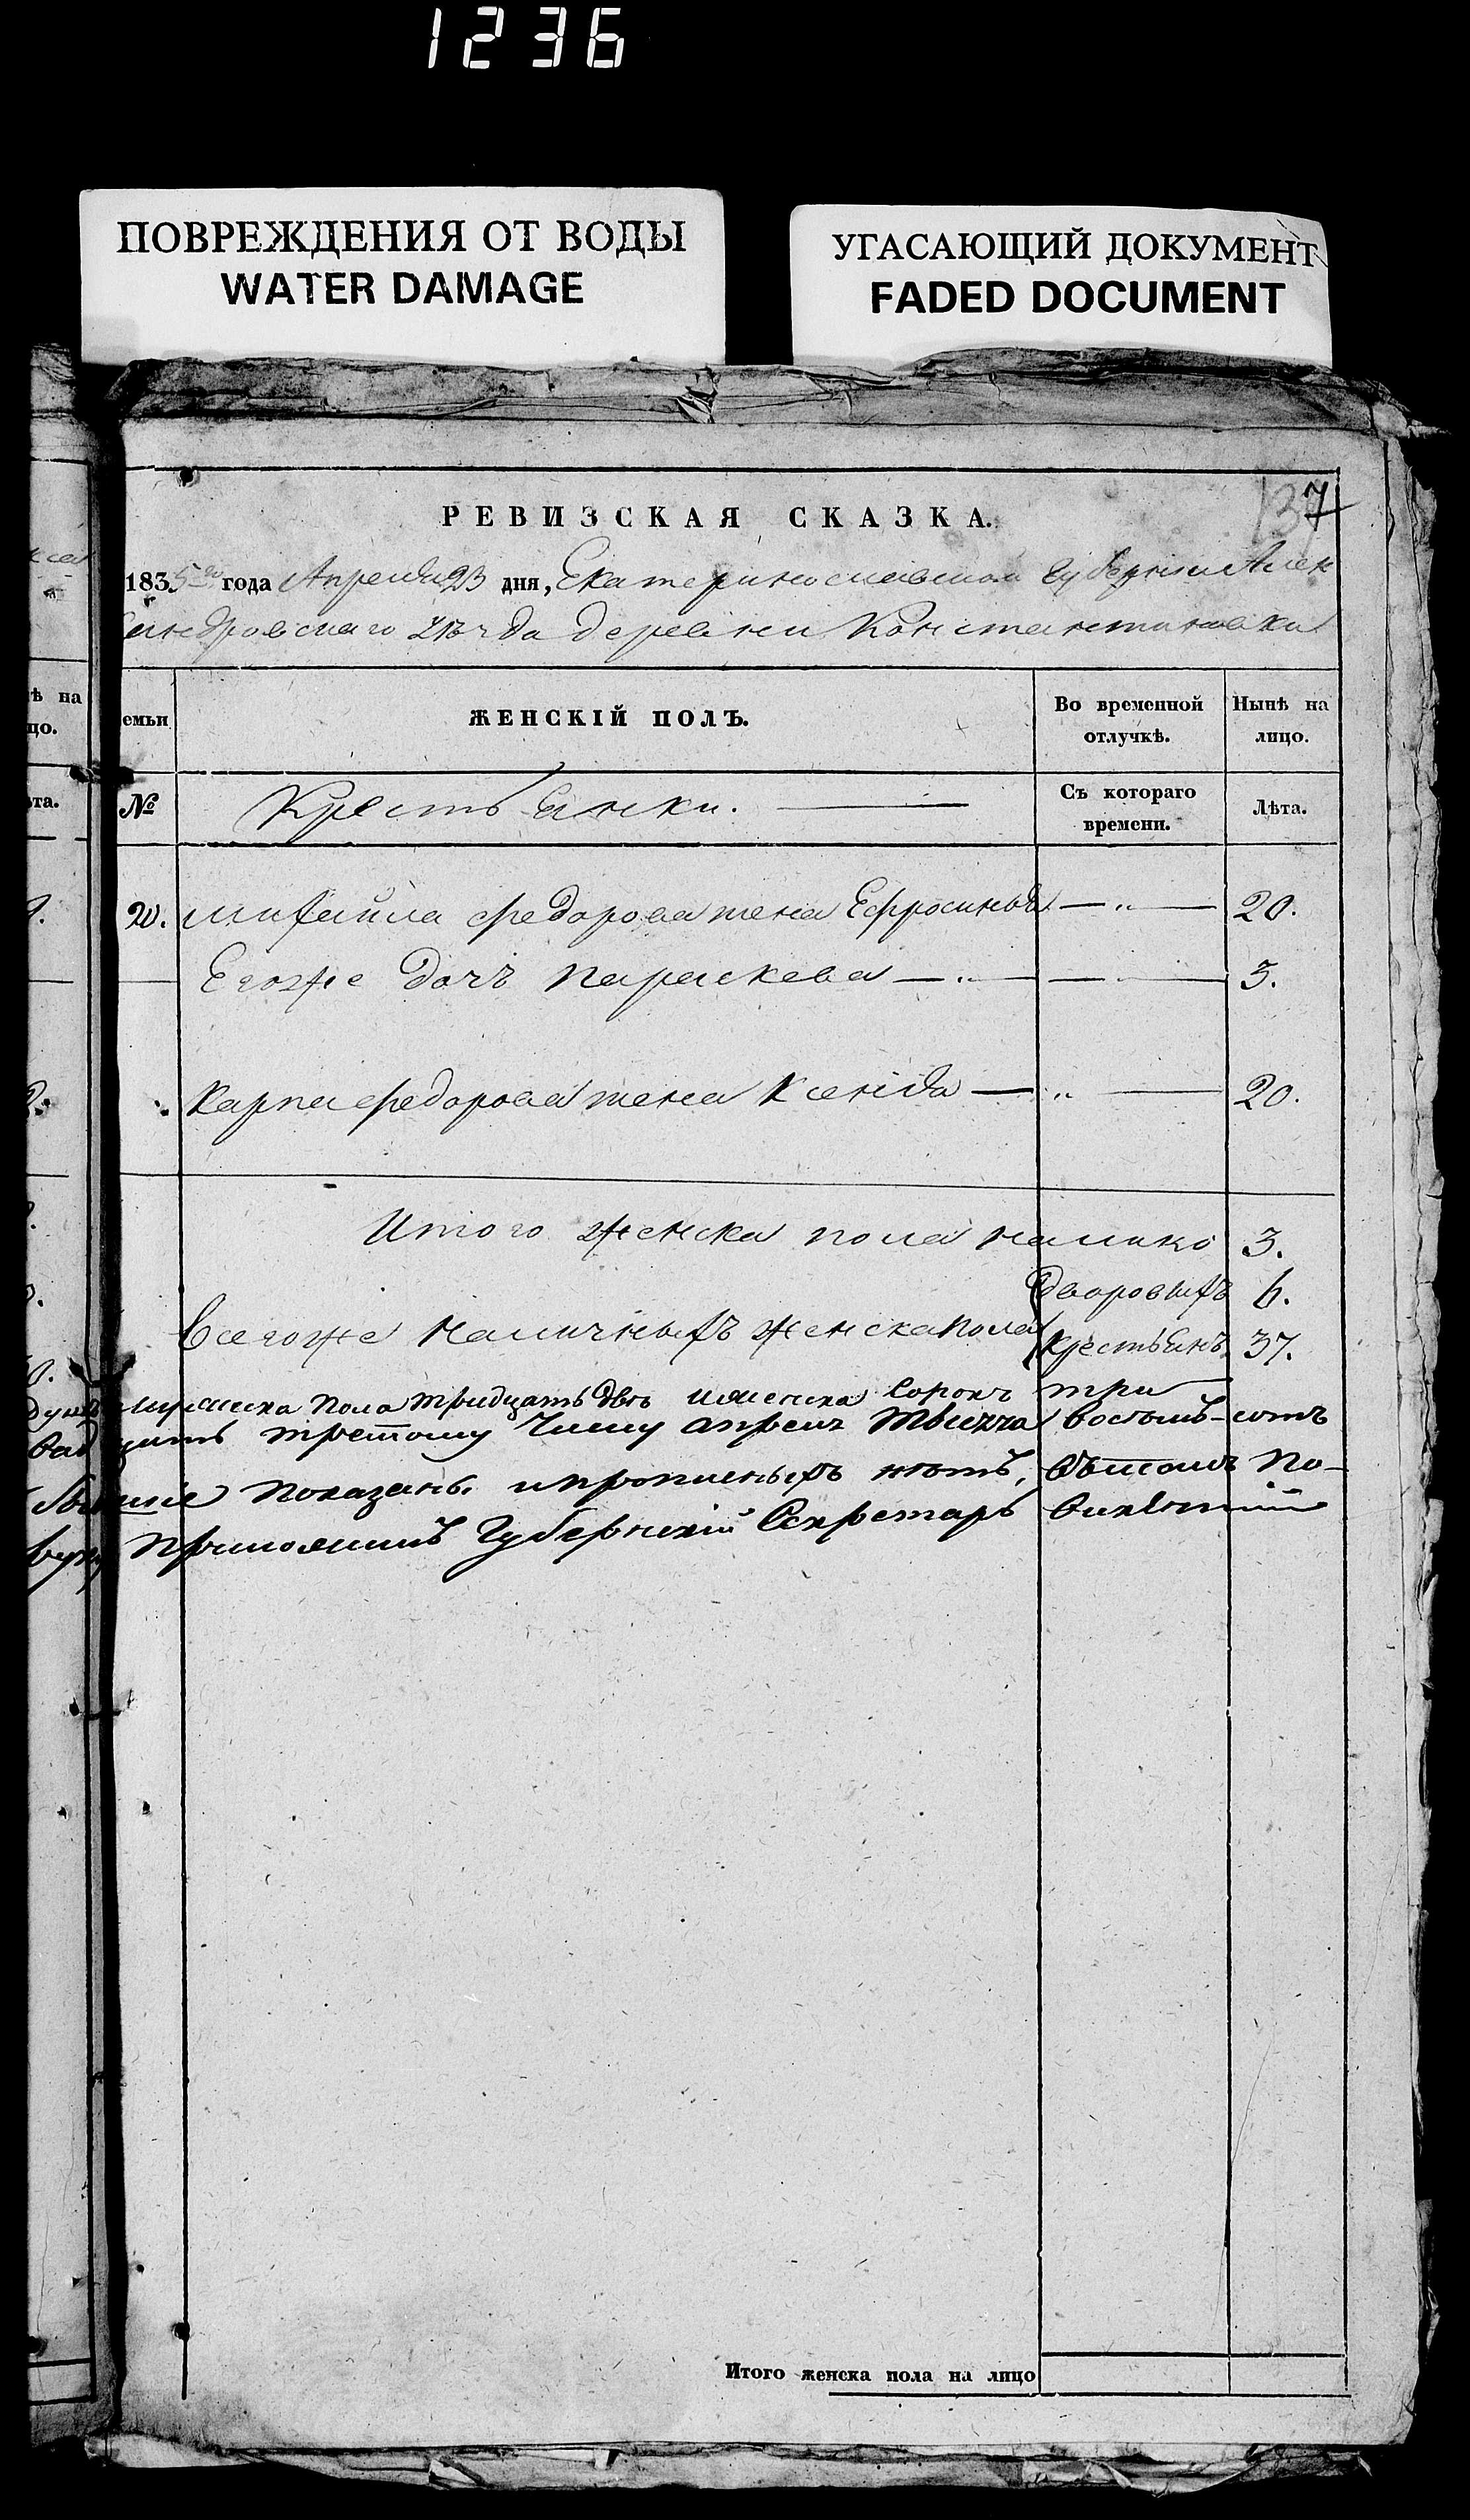 1236
ПОВРЕЖДЕНИЯ ОТ ВОДЫ
WATER DAMAGE
УГАСАЮЩИЙ ДОКУМЕНТ
FADED DOCUMENT
137
РЕВИЗСКАЯ СКАЗКА.
1835го года Апреля 23 дня, Екатеринославской губернии Алек
сандровскаго уѣзда деревни Константиновки
ѣ на
цо.
ѣта.
емьи
ЖЕНСКІЙ ПОЛЪ.
Во временной отлучкѣ.
Нынѣ на лицо.
№
Крестьянки.
Съ котораго времени.
Лѣта.
20. Михайла Федорова жена Ефросинья — „ — 20.
Егоже дочь Параскева — „ — 3.
Карпа Федорова жена Ксенія — „ — 20.
Итого женска пола налико 3.
дворовыхъ 6.
Всегоже наличныхъ женска пола
крестьянъ 37.
душъ мужеска пола тридцать двѣ и женска сорокъ три
третому числу апреля тысяча восемь-сотъ
показаны и прописныхъ нѣтъ, въ томъ по-
приложилъ Губернскій Секретарь
Итого женска пола на лицо